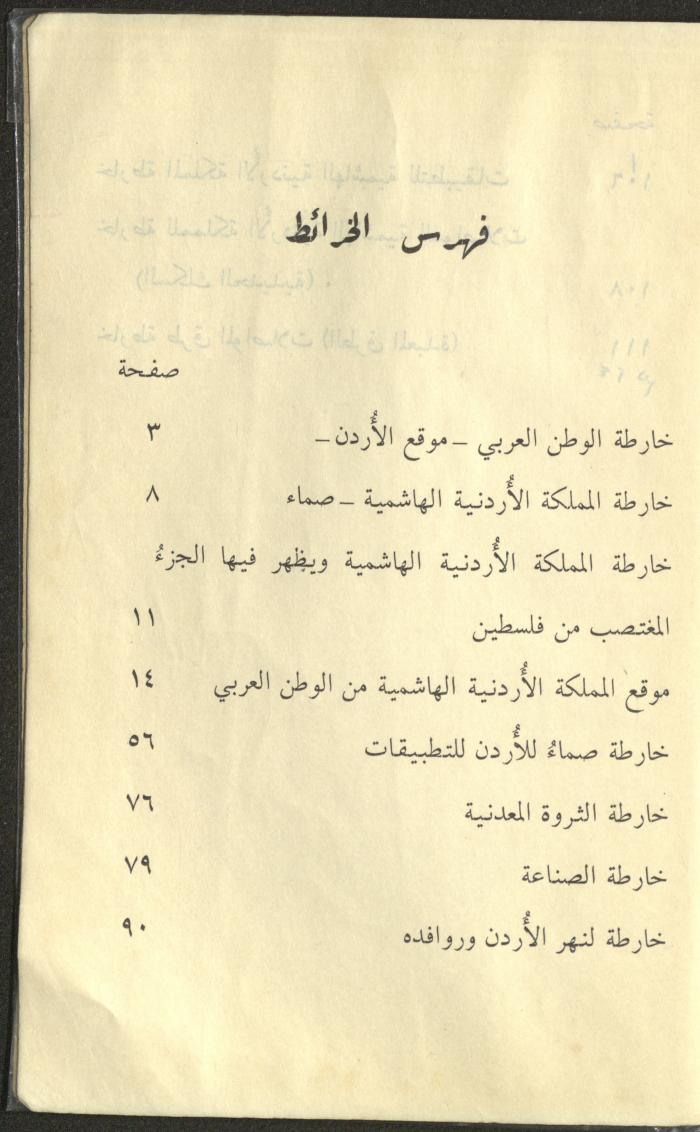 فهرس الخرائط
صفحة
خارطة الوطن العربي ــ موقع الأُردن ــ ٣
خارطة المملكة الأُردنية الهاشمية ــ صماء ٨
خارطة المملكة الأُردنية الهاشمية ويظهر فيها الجزءُ
المغتصب من فلسطين ١١
موقع المملكة الأُردنية الهاشمية من الوطن العربي ١٤
خارطة صماءُ للأُردن للتطبيقات ٥٦
خارطة الثروة المعدنية ٧٦
خارطة الصناعة ٧٩
خارطة لنهر الأُردن وروافده ٩٠